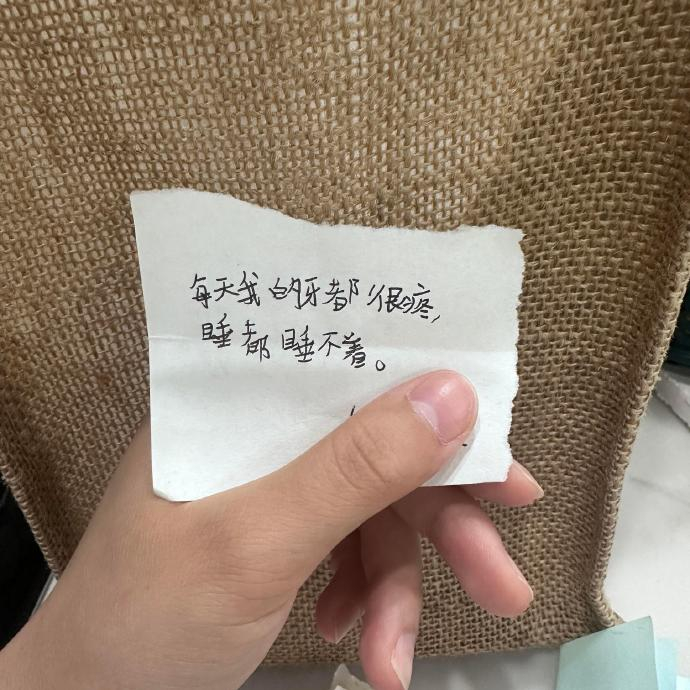 每天我的牙都很疼，
睡都睡不着。